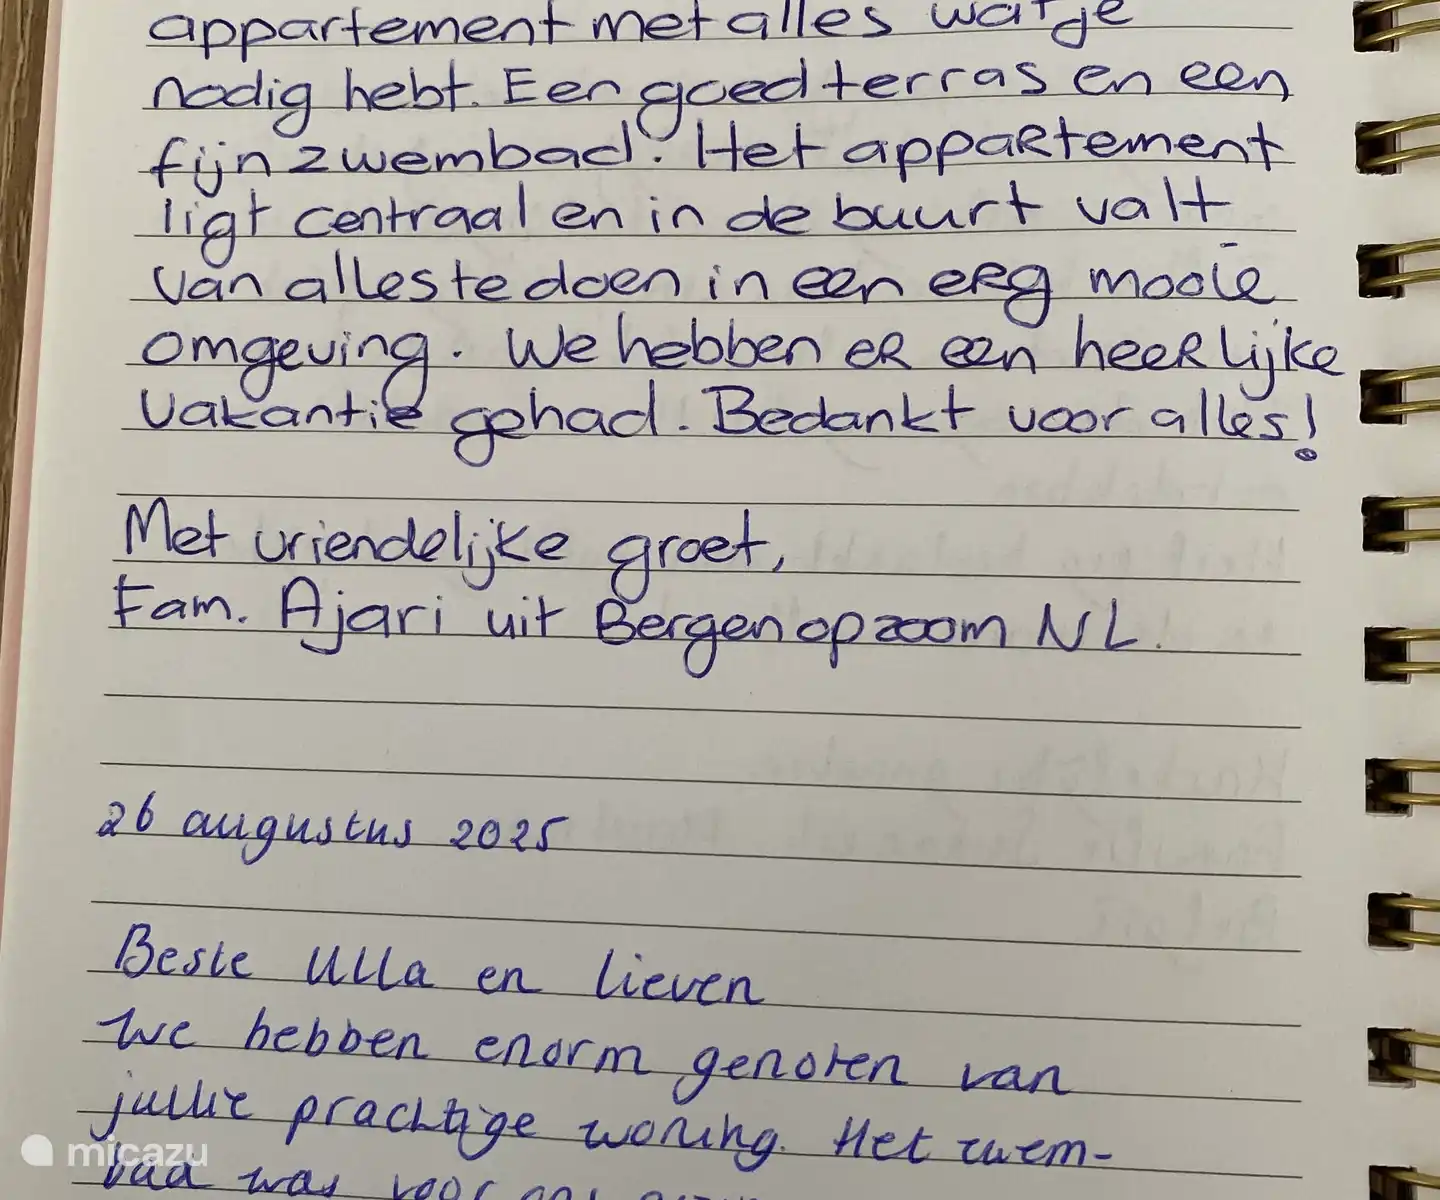 appartement met alles wat je
nodig hebt. Een goed terras en een
fijn zwembad. Het appartement
ligt centraal en in de buurt valt
van alles te doen in een erg mooie
omgeving. We hebben er een heerlijke
vakantie gehad. Bedankt voor alles!
Met vriendelijke groet,
Fam. Ajari uit Bergen op zoom NL.
26 augustus 2025
Beste Ulla en Lieven
We hebben enorm genoten van
jullie prachtige woning. Het zwem-
bad was voor ons
micazu